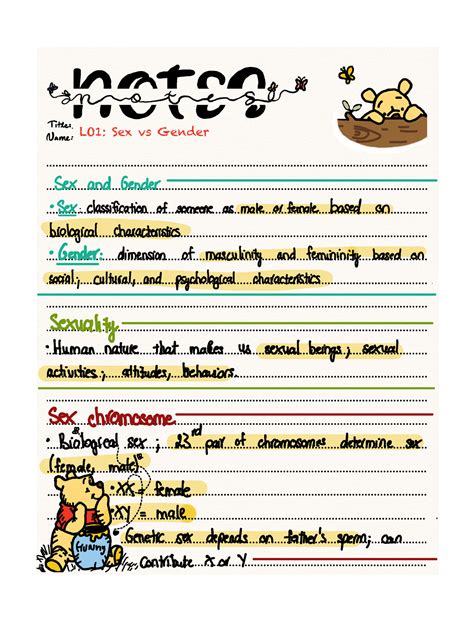 notes
notes
Title:
Name: L01: Sex vs Gender
Sex and Gender
• Sex: classification of someone as male or female based on
biological characteristics
• Gender: dimension of masculinity and femininity based on
social; cultural, and psychological characteristics
Sexuality
• Human nature that makes us sexual beings; sexual
activities; attitudes, behaviors.
Sex chromosome
• Biological sex; 23rd pair of chromosomes determine sex
(female, male)
• XX = female
• XY = male
Genetic sex depends on father's sperm; can
contribute X or Y
Hunny